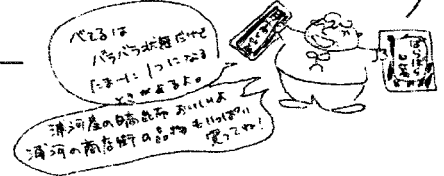 べてるは
バラバラ状態だけど
たま〜に1つになる
ときがあるよ。
浦河産の日高昆布おいしいよ
浦河の商店街の品物もいっぱい
買ってね!